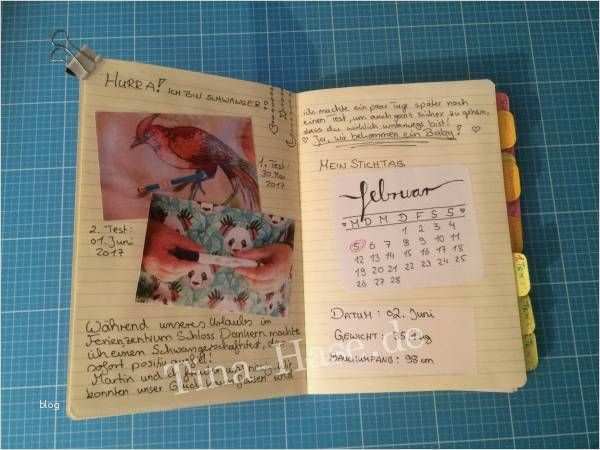 HURRA! ICH BIN SCHWANGER!
1. Test:
30. Mai
2017
2. Test:
01. Juni
2017
Während unseres Urlaubs im
Ferienzentrum Schloss Dankern machte
ich einen Schwangerschaftstest, der
sofort positiv
Martin und
konnten unser Glück
Ich machte ein paar Tage später noch
einen Test, um auch ganz sicher zu gehen,
dass du wirklich unterwegs bist!
♡ Ja, wir bekommen ein Baby! ♡
MEIN STICHTAG
februar
M D M D F S S
1 2 3 4
5 6 7 8 9 10 11
12 13 14 15 16 17 18
19 20 21 22 23 24 25
26 27 28
DATUM: 02. Juni
GEWICHT: kg
BAUCHUMFANG: 98 cm
Tina-Hase.de
blog